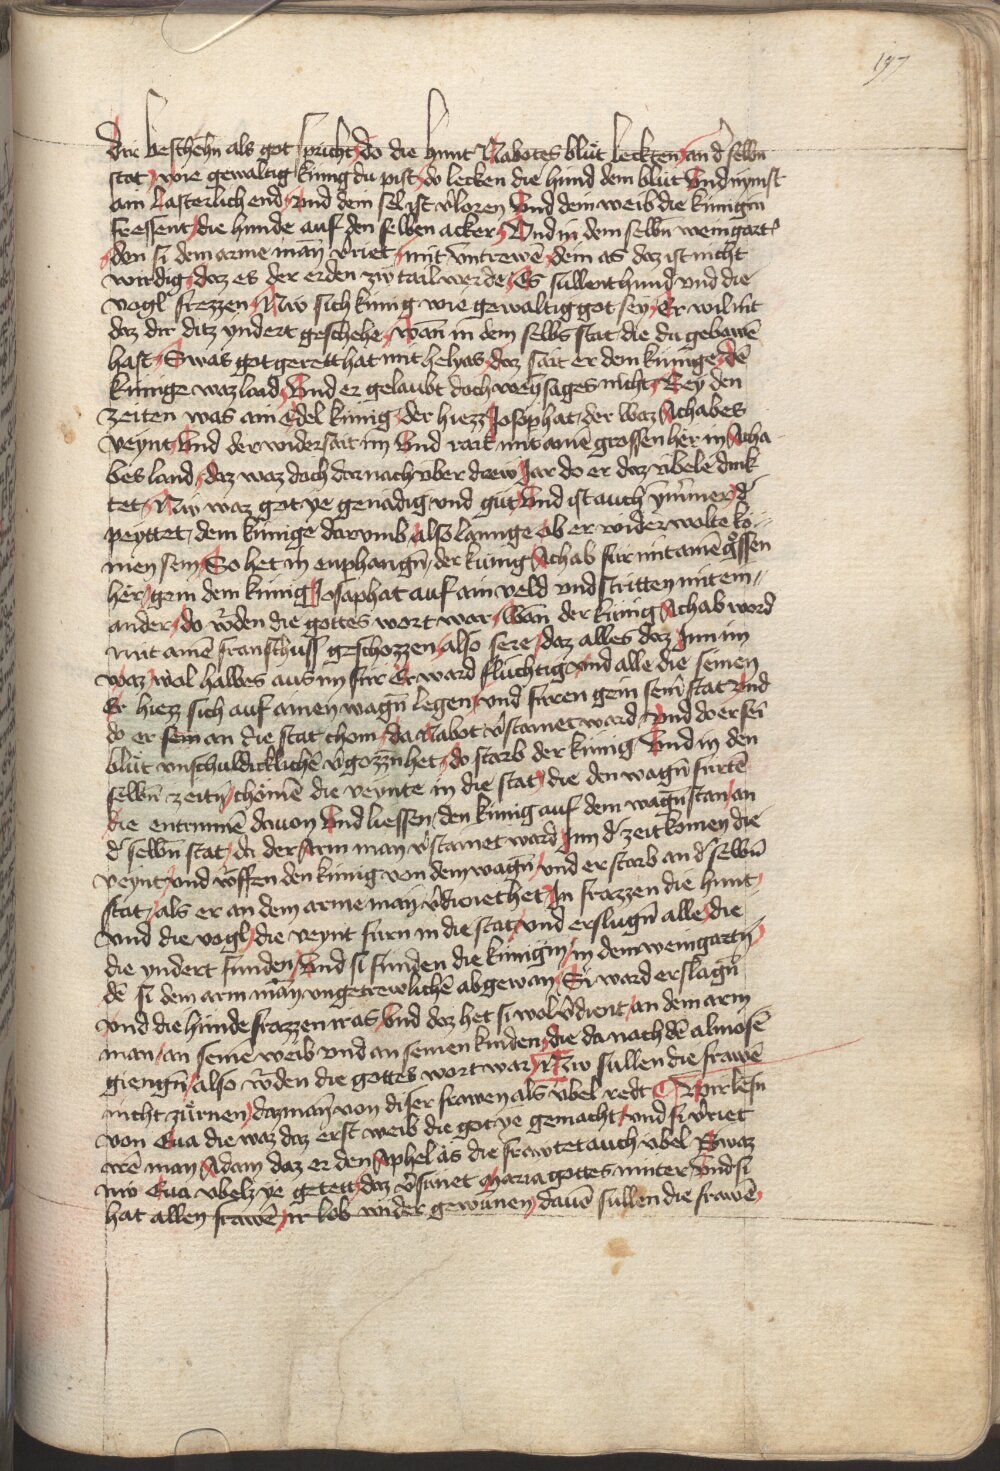 197
dir beschehn als got spricht do die hunt Nabotes blůt leckten an d' selbn
stat wie gewaltig kunig du pist do lecken die hund dein blůt Vnd nymst
ain lasterlich end vnd dein sel ist v'loren Vnd dein weib die kunigin
fressent die hunde auf den selben acker Vnd in dem selbn̄ weingart'
den si dem arme man v'riet mit vntrewē dein as daz ist nicht
wirdig daz es der erden zw̄ tail werde Es sullent hund vnd die
vogl frezzen Nw sich kunig wie gewaltig got sey Er wil nit
daz dir ditz yndert geschehe wan̄ in dem selbn̄ stat die du gebowē
hast Swas got gerett hat mit helyas daz sait er dem kunige dē
kunige waz laid Vnd er gelaubt doch weyssages nicht Bey den
zeiten was ain Edel kunig der hiezz Josophat der waz Achabes
veynt Vnd der widersait im Vnd rait mit ainē grossen her in Acha
bes land daz waz doch darnach vber drew Jar do er daz vbele duck
tet Nw waz got ye genadig vnd gůt Vnd ist auch ym̄mer d'
peyttet dem kunige darumb also lannge ob er wider wolte kö
men sein So het in enphangn̄ der kunig Achab fur mit ainē g'ssen
her gein dem kunig Josaphat auf ain veld vnd stritten mit ein
ander do w'den die gottes wort war Wan̄ der kunig Achab word
mit ainē geschozzen also sere daz alles daz Inn im
waz wol halbes aus im fur Er ward fluchtig vnd alle die seinen
Er hiezz sich auf ainen wagn̄ legen vnd furen gein sein' stat Vnd
do er sein an die stat chom da Nabot v'stainet ward Vnd do er sei
blůt vnschuldicklichē v'gozzn̄ het do starb der kunig Vnd in den
selbn̄ zeitn̄ chömē die veynte in die stat die den wagn̄ furtē
die entrunnē dauon Vnd liessen den kunig auf dem wagn̄ stan an
d' selbn̄ stat da der Arm man v'stainet ward Inn d' zeit komen die
veynt vnd w'ffen den kunig von dem wagn̄ vnd er starb an d' selbn̄
stat als er an dem arme man v'dienet het In frazzen die hunt
vnd die vogl die veynt furn in die stat vnd erslugn̄ alle die
die yndert funden Vnd si funden die kunigin in dem weingartn̄
dē si dem arm man vngetrewlichē abgewan Si ward erslagn̄
vnd die hunde frazzen ir as Vnd daz het si wol v'dient an dem arm
man an seinē weib vnd an seinen kinden die da nach dē almosē
giengn̄ also w'den die gottes wort war Nw sullen die frawē
nicht zürnen daz man von diser frawen als vbel redt Wir lesn̄
von Eua die waz daz erst weib die got ye gemacht vnd si v'riet
iren man Adam daz er den Aphel as die fraw tet auch vbel Swaz
nw Eua vbelz ye getett daz v'sunet Maria gottes muter Vnd si
hat allen frawē ir lob wider gewunen dauō sullen die frawē